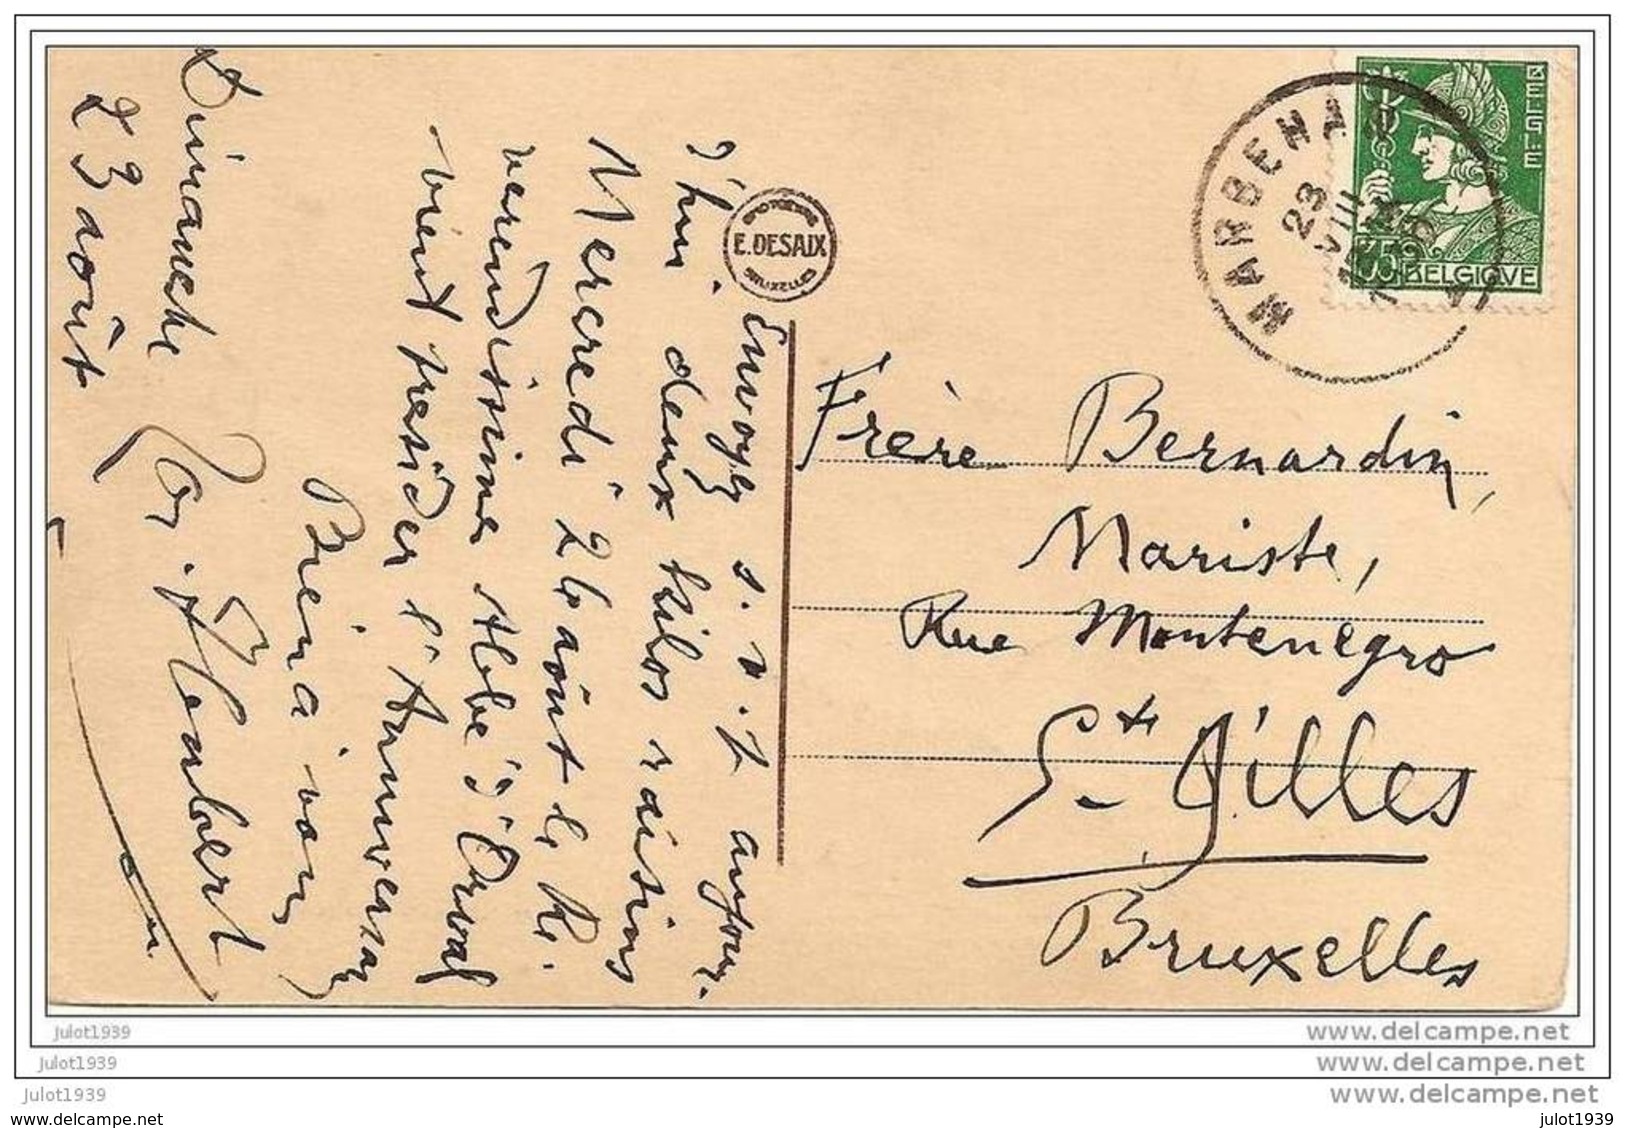 Envoyez s.v.p. aujour-
d'hui deux kilos raisins
Mercredi 26 août le R.
verendissime Abbé d'Orval
vient présider l'Anniversaire
Bien à vous
Dimanche
23 août
Frère Bernardin,
Mariste,
Rue Montenegro
St. Gilles
Bruxelles
E. DESAIX
BRUXELLES
MARBEHAN
23
VIII
BELGIE
35
BELGIQUE
julot1939
www.delcampe.net
julot1939
www.delcampe.net
julot1939
www.delcampe.net
www.delcampe.net
julot1939